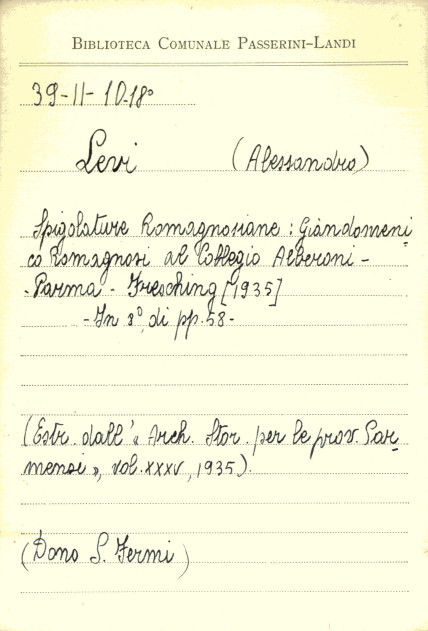 BIBLIOTECA COMUNALE PASSERINI-LANDI
39-11-10.18°
Levi (Alessandro)
Spigolature Romagnosiane: Giandomeni-
co Romagnosi al Collegio Alberoni -
- Parma - Fresching [1935]
- In 8°, di pp. 58 -
(Estr. dall'« Arch. Stor. per le prov. Par-
mensi », vol. XXXV, 1935).
(Dono S. Fermi)